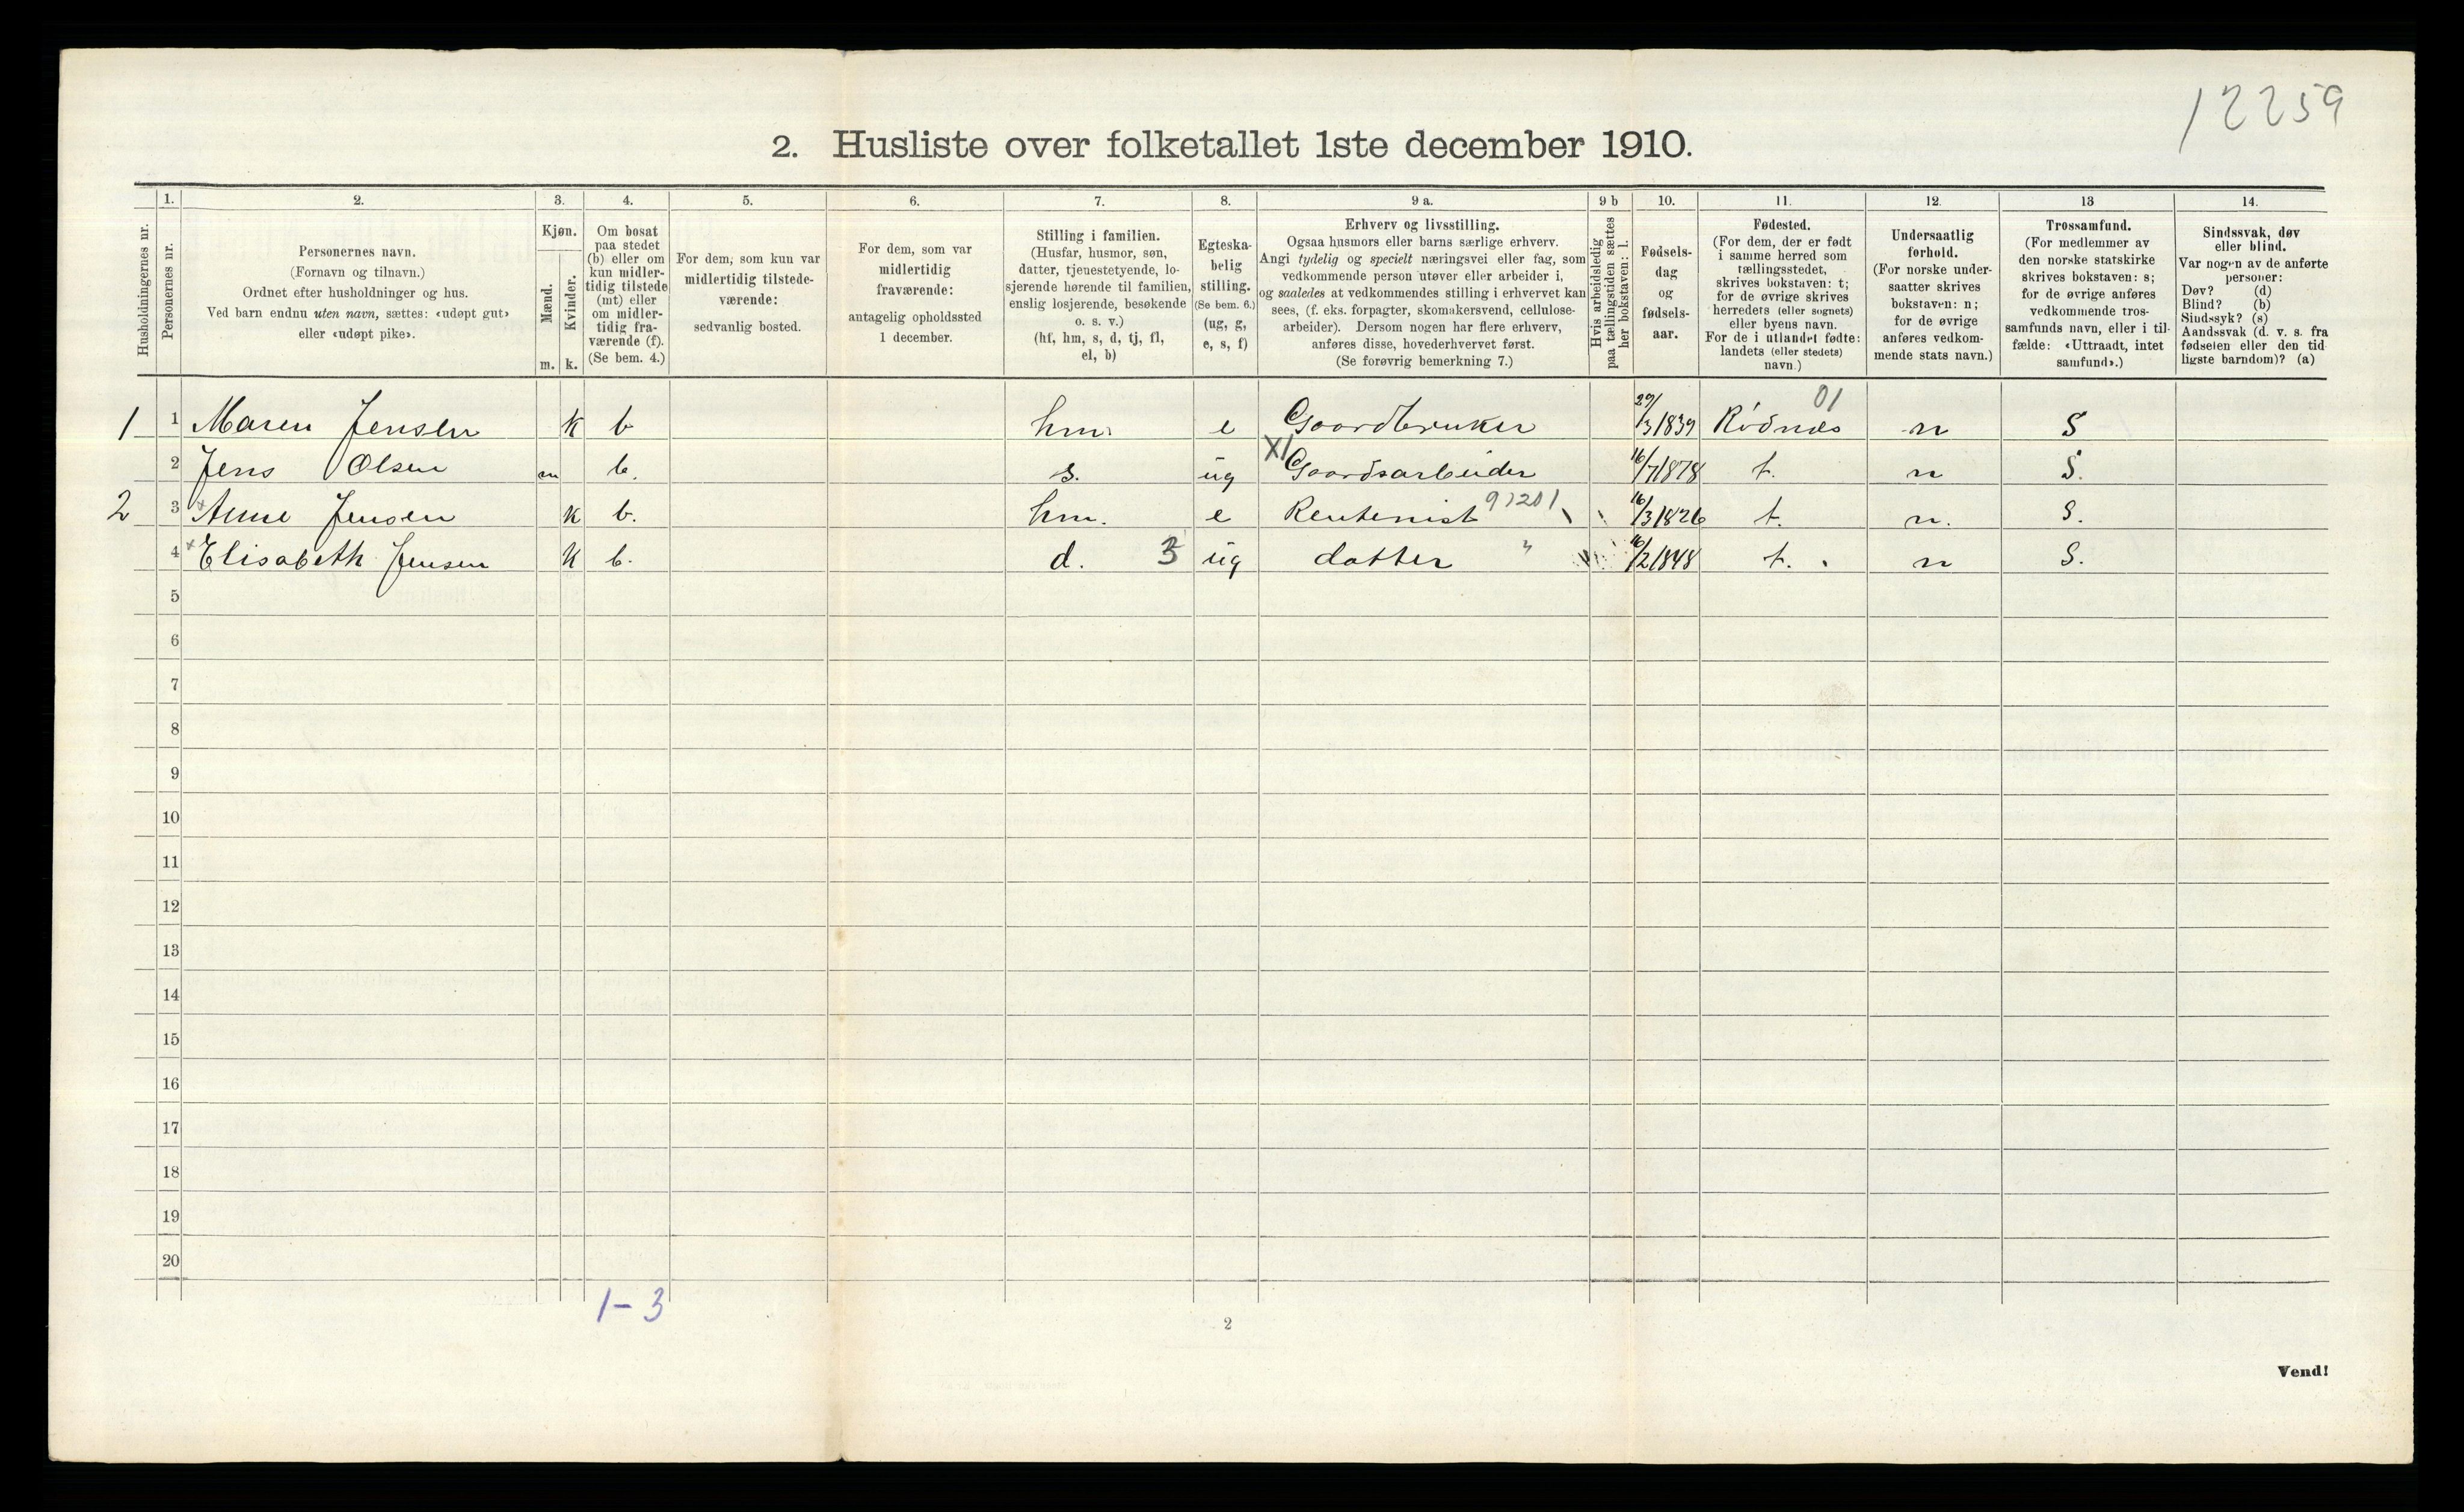 12259
2. Husliste over folketallet 1ste december 1910.
Husholdningernes nr.
1. Personernes nr.
2. Personernes navn.
(Fornavn og tilnavn.)
Ordnet efter husholdninger og hus.
Ved barn endnu uten navn, sættes: «udøpt gut»
eller «udøpt pike».
3. Kjøn.
Mænd. m.
Kvinder. k.
4. Om bosat
paa stedet
(b) eller om
kun midler-
tidig tilstede
(mt) eller
om midler-
tidig fra-
værende (f).
(Se bem. 4.)
5. For dem, som kun var
midlertidig tilstede-
værende:
sedvanlig bosted.
6. For dem, som var
midlertidig
fraværende:
antagelig opholdssted
1 december.
7. Stilling i familien.
(Husfar, husmor, søn,
datter, tjenestetyende, lo-
sjerende hørende til familien,
enslig losjerende, besøkende
o. s. v.)
(hf, hm, s, d, tj, fl,
el, b)
8. Egteska-
belig
stilling.
(Se bem. 6.)
(ug, g,
e, s, f)
9 a. Erhverv og livsstilling.
Ogsaa husmors eller barns særlige erhverv.
Angi tydelig og specielt næringsvei eller fag, som
vedkommende person utøver eller arbeider i,
og saaledes at vedkommendes stilling i erhvervet kan
sees, (f. eks. forpagter, skomakersvend, cellulose-
arbeider). Dersom nogen har flere erhverv,
anføres disse, hovederhvervet først.
(Se forøvrig bemerkning 7.)
9 b Hvis arbeidsledig
paa tællingstiden sættes
her bokstaven: l.
10. Fødsels-
dag
og
fødsels-
aar.
11. Fødested.
(For dem, der er født
i samme herred som
tællingsstedet,
skrives bokstaven: t;
for de øvrige skrives
herredets (eller sognets)
eller byens navn.
For de i utlandet fødte:
landets (eller stedets)
navn.)
12. Undersaatlig
forhold.
(For norske under-
saatter skrives
bokstaven: n;
for de øvrige
anføres vedkom-
mende stats navn.)
13 Trossamfund.
(For medlemmer av
den norske statskirke
skrives bokstaven: s;
for de øvrige anføres
vedkommende tros-
samfunds navn, eller i til-
fælde: «Uttraadt, intet
samfund».)
14. Sindssvak, døv
eller blind.
Var nogen av de anførte
personer:
Døv? (d)
Blind? (b)
Sindssyk? (s)
Aandssvak (d. v. s. fra
fødselen eller den tid
ligste barndom)? (a)
01
1 1 Maren Jensen K b hm. e Gaardbruker 29/3 1839 Rödnes n S
2 Jens Olsen m b. s. ug X1 Gaardsarbeider 16/7 1878 t. n S.
2 3 Anne Jensen K b. hm. e Rentenist 91201 16/3 1826 t. n. S.
4 Elisabeth Jensen K b. d. 3 ug datter " 16/2 1848 t. n S.
5
6
7
8
9
10
11
12
13
14
15
16
17
18
19
20
1-3
2
Vend!